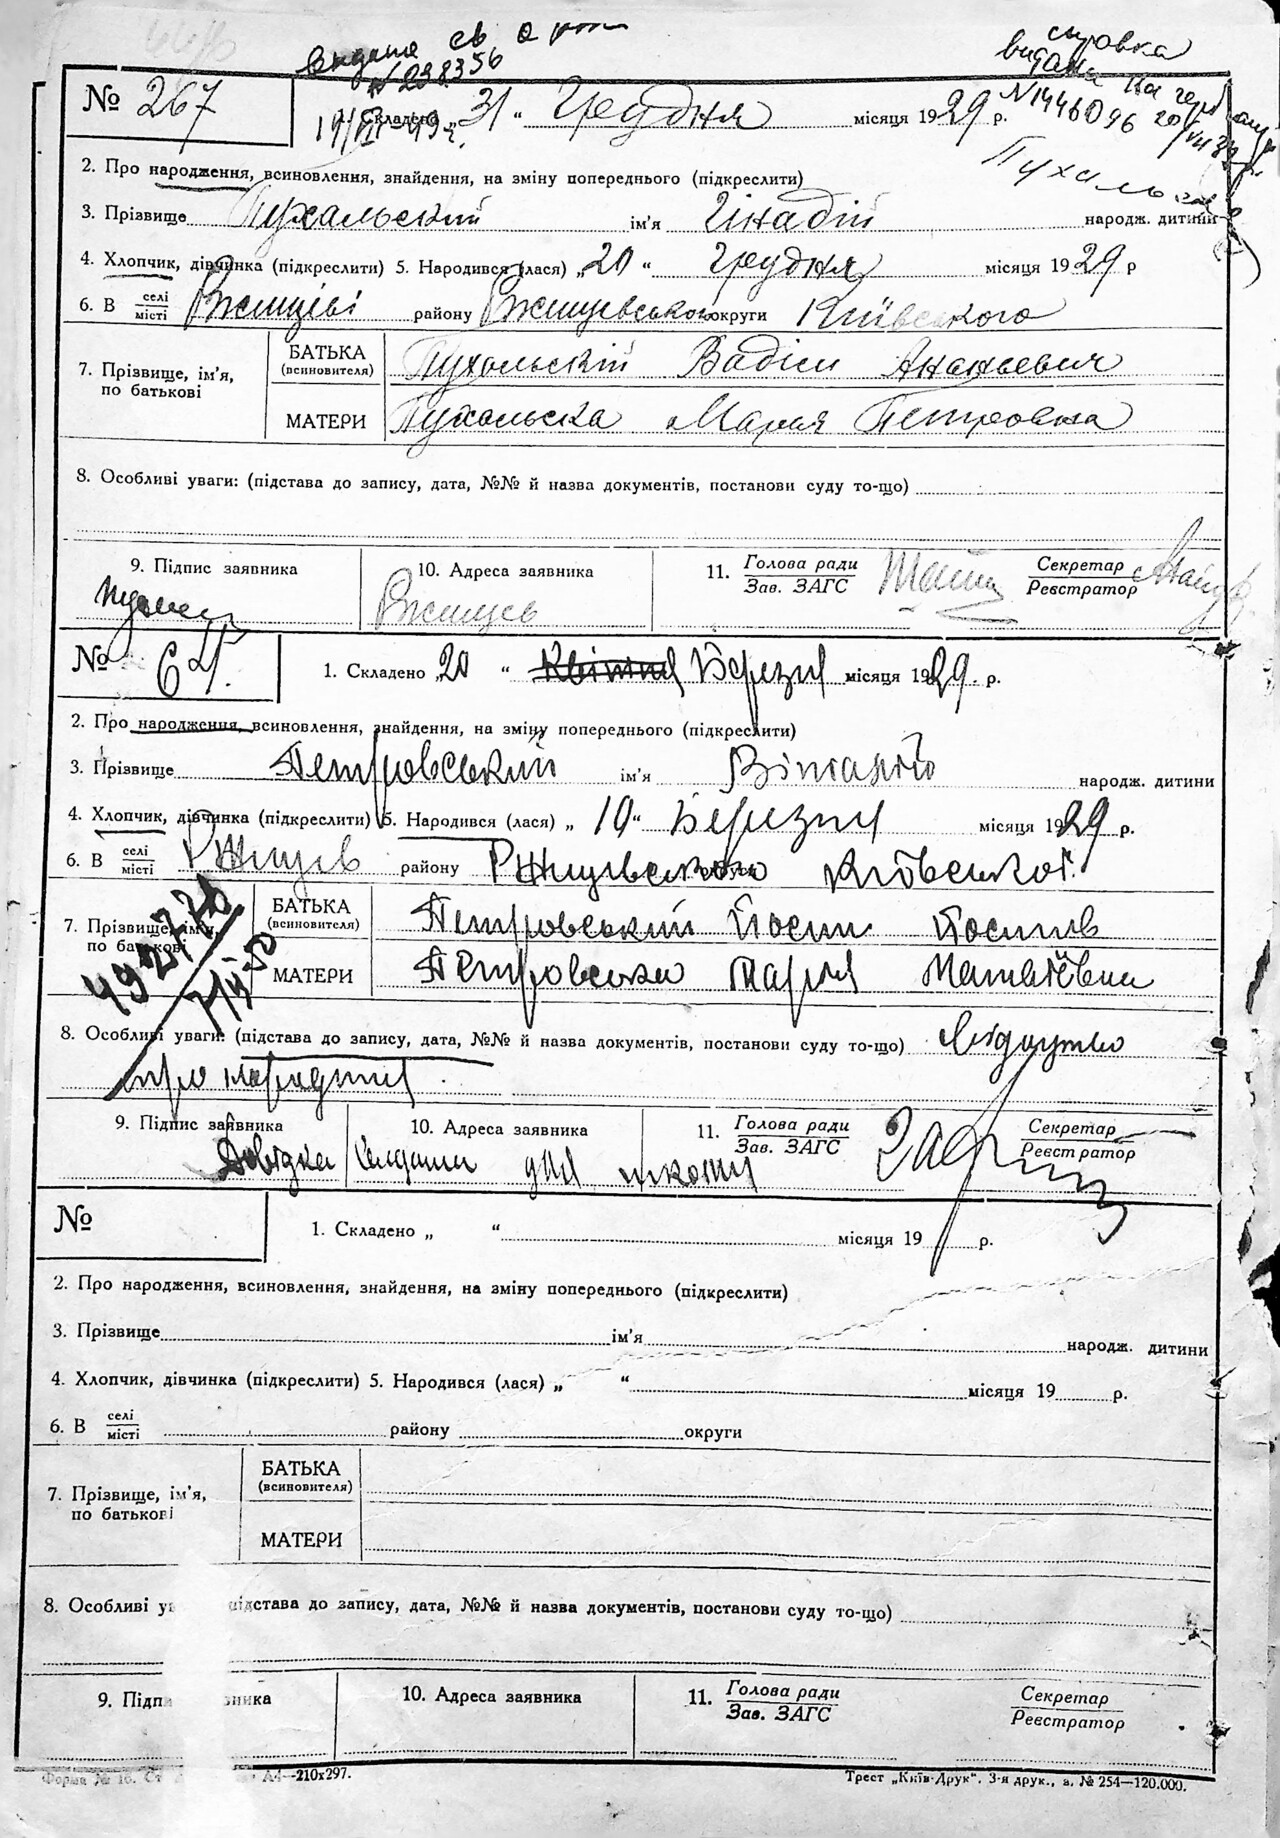 видана св о рож
N 238356
справка
видана на герб
N 1446096
Пухальс
№ 267
1. Складено „31“ Грудня місяця 1929 р.
2. Про народження, всиновлення, знайдення, на зміну попереднього (підкреслити)
3. Прізвище Пухальский ім'я Гінадій народж. дитини
4. Хлопчик, дівчинка (підкреслити) 5. Народився (лася) „20“ Грудня місяця 1929 р
6. В селі місті Ржищеві району Ржищевського округи Київського
7. Прізвище, ім'я, по батькові
БАТЬКА (всиновителя) Пухальскій Вадім Ананьевич
МАТЕРИ Пухальска Мария Петровна
8. Особливі уваги: (підстава до запису, дата, №№ й назва документів, постанови суду то-що)
9. Підпис заявника
10. Адреса заявника Ржищев
11. Голова ради Зав. ЗАГС
Секретар Реєстратор
№ 64.
1. Складено „20“ Квітня Березня місяця 1929. р.
2. Про народження, всиновлення, знайдення, на зміну попереднього (підкреслити)
3. Прізвище Петровський ім'я Віталій народж. дитини
4. Хлопчик, дівчинка (підкреслити) 5. Народився (лася) „10“ Березня місяця 1929 р.
6. В селі місті Ржищев району Ржищевського Київської
7. Прізвище, ім'я, по батькові
БАТЬКА (всиновителя) Петровський Йосип Йосипів
МАТЕРИ Петровська Марія Матвіївна
8. Особливі уваги: (підстава до запису, дата, №№ й назва документів, постанови суду то-що)
про народження
9. Підпис заявника
10. Адреса заявника
Довідка видана для школи
11. Голова ради Зав. ЗАГС
Секретар Реєстратор
№
1. Складено „ “ місяця 19 р.
2. Про народження, всиновлення, знайдення, на зміну попереднього (підкреслити)
3. Прізвище ім'я народж. дитини
4. Хлопчик, дівчинка (підкреслити) 5. Народився (лася) „ “ місяця 19 р.
6. В селі місті району округи
7. Прізвище, ім'я, по батькові
БАТЬКА (всиновителя)
МАТЕРИ
8. Особливі підстава до запису, дата, №№ й назва документів, постанови суду то-що)
9. Підп ника
10. Адреса заявника
11. Голова ради Зав. ЗАГС
Секретар Реєстратор
Форма № 16. А4—210х297.
Трест „Київ-Друк“. 3-я друк., з. № 254—120.000.